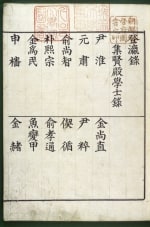 登瀛錄
集賢殿學士錄
金尚直
尹淮
尹粹
元肅
偰循
俞尚智
俞孝通
朴熙宗
魚變甲
金爲民
金赭
申檣